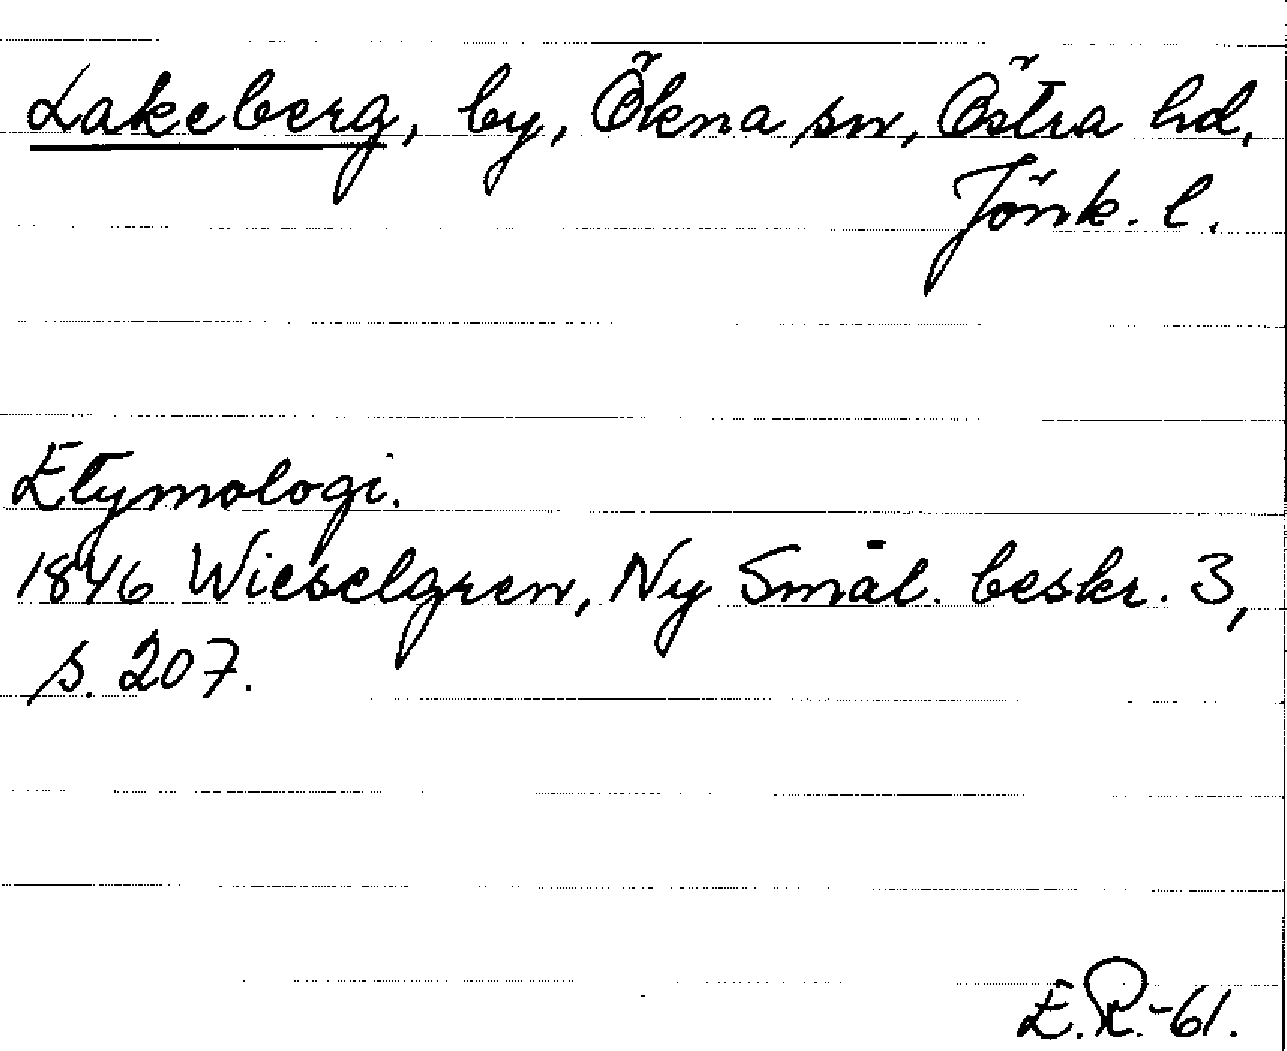 Lakeberg, by, Ökna sn, Östra hd,
Jönk. l.
Etymologi.
1846 Wieselgren, Ny Smål. beskr. 3,
s. 207.
E.R.-61.